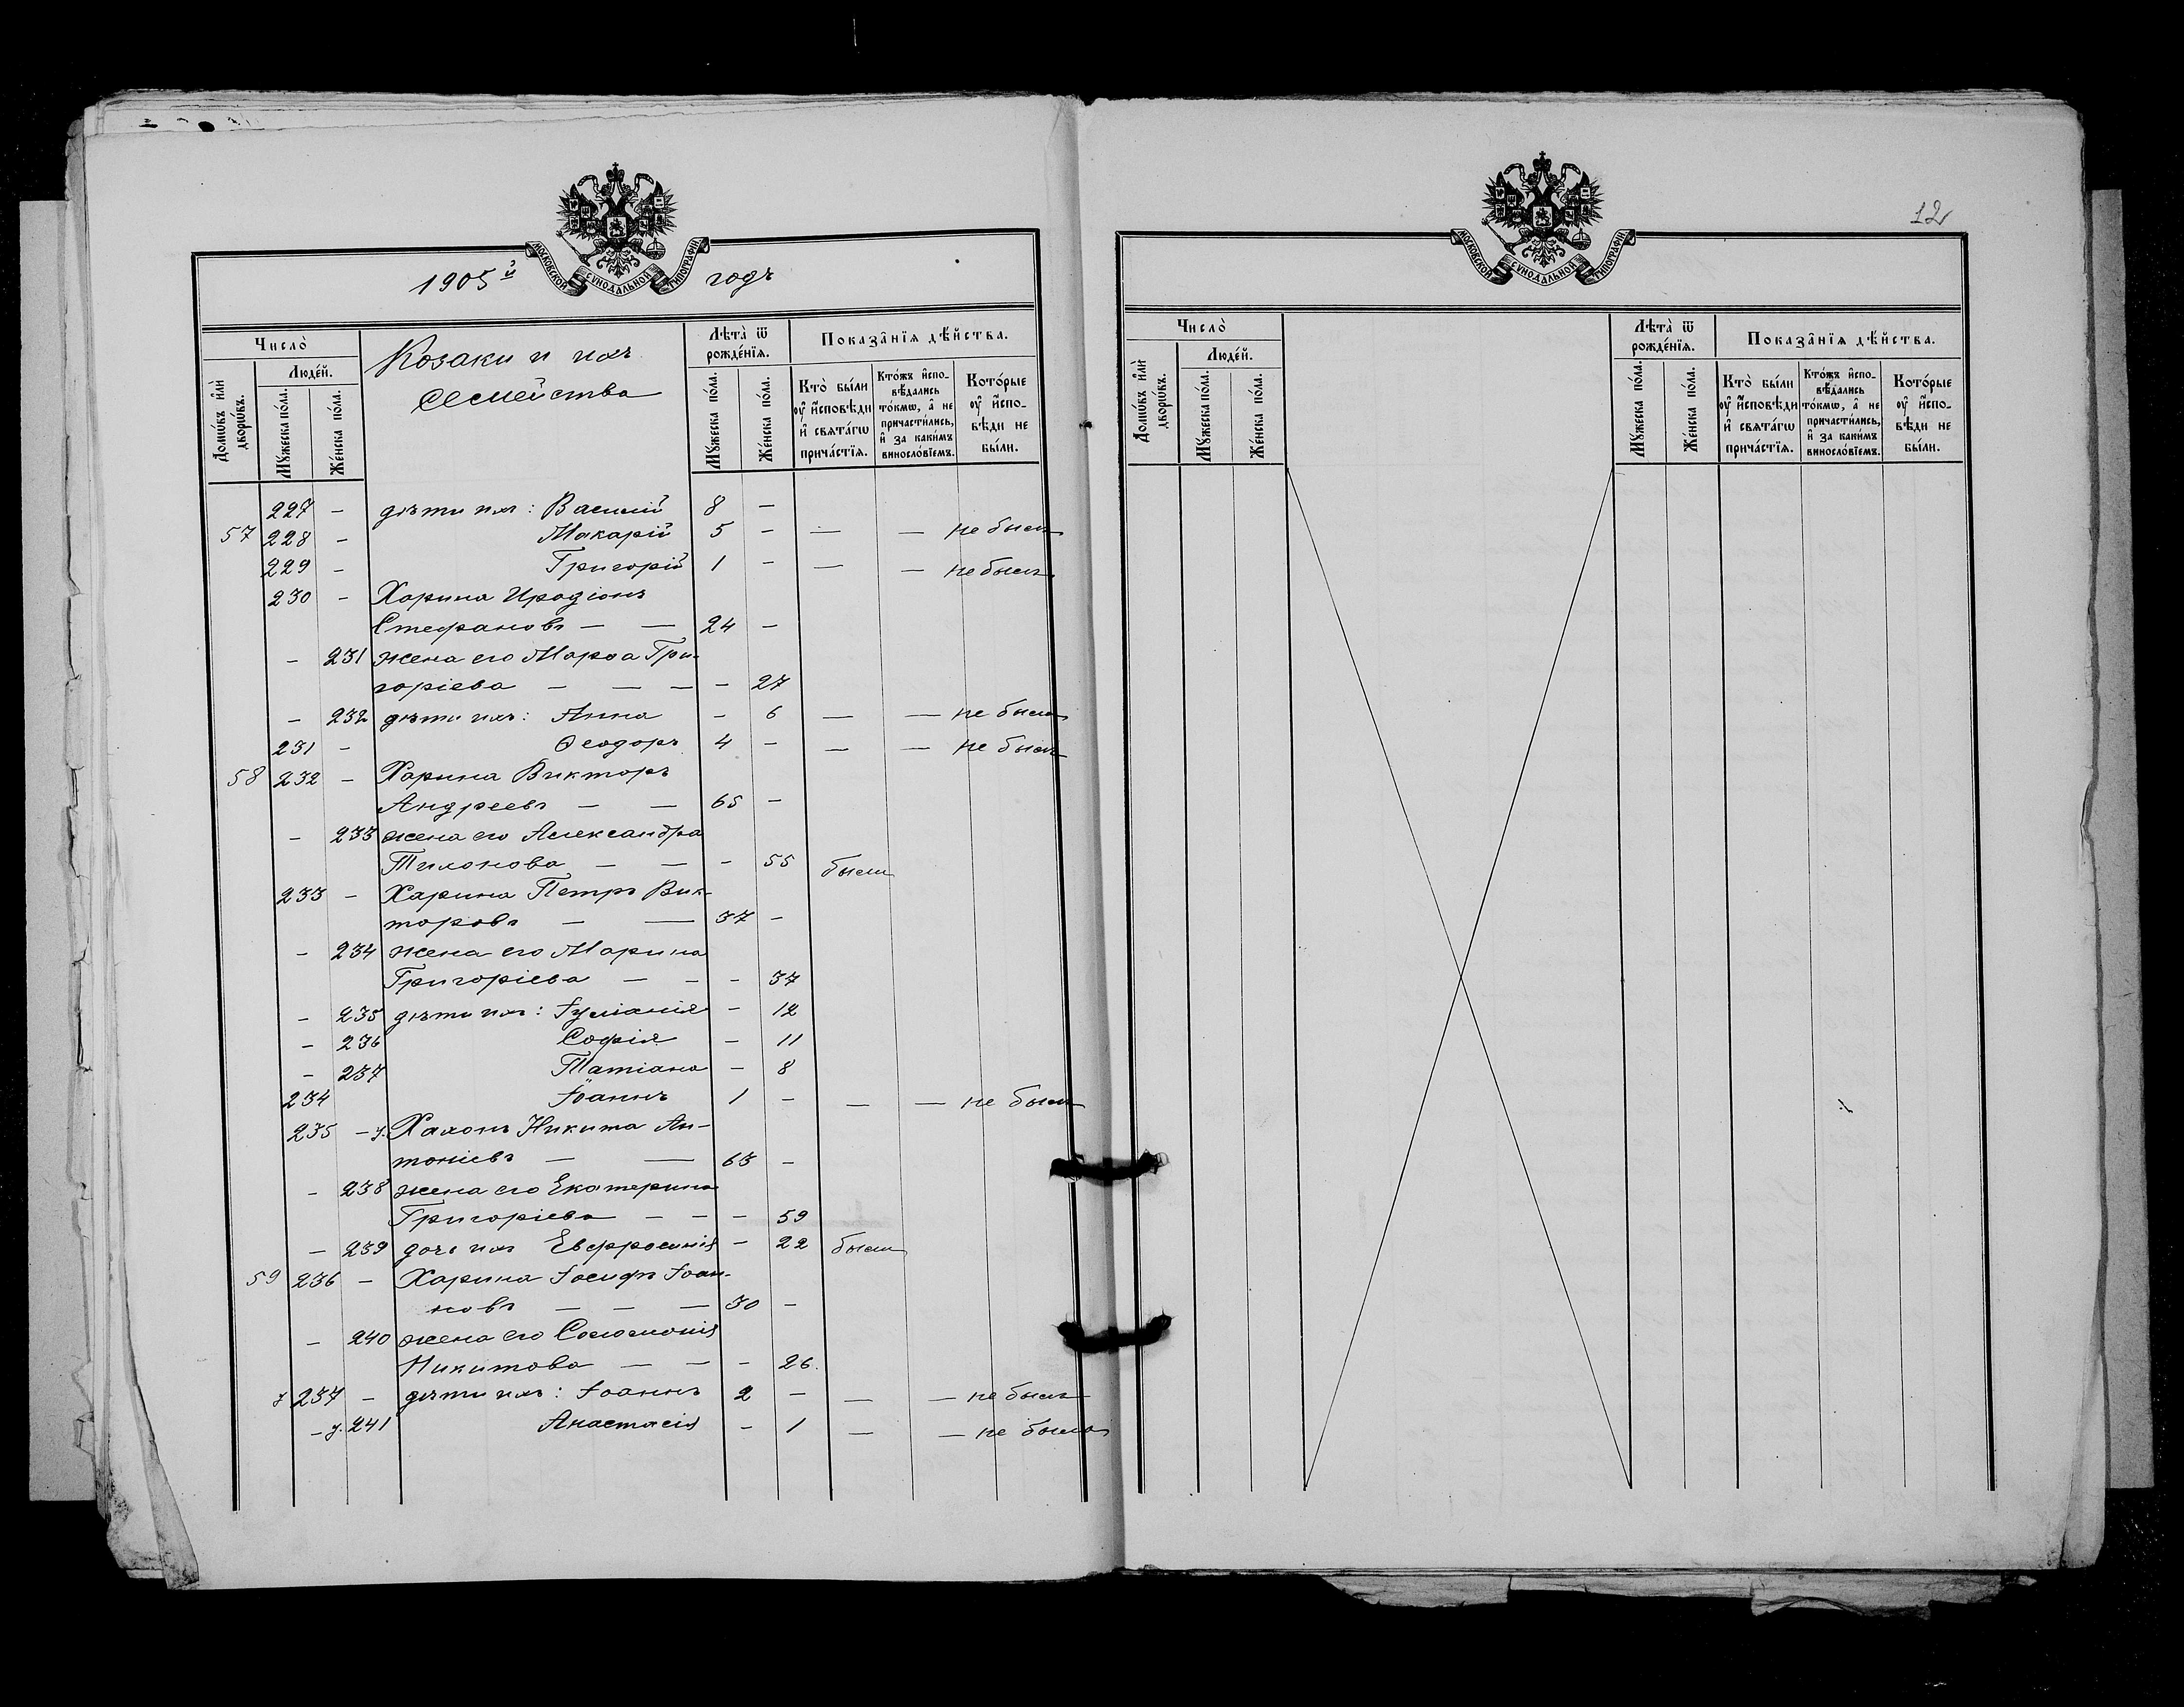 12
МОСКОВСКОЙ СѴНОДАЛЬНОЙ ТИПОГРАФІИ
МОСКОВСКОЙ СѴНОДАЛЬНОЙ ТИПОГРАФІИ
1905й годъ
Число̀
Козаки и ихъ
семейства
Лѣта̀ ѿ рожде́нїѧ.
Показа̂нїѧ дѣ́йства.
Людє́й.
Домѡ́въ и҆лѝ дворѡ́въ.
Мꙋ́жеска по́ла.
Же́нска по́ла.
Мꙋ́жеска по́ла.
Же́нска по́ла.
Кто̀ бы́ли ᲂу҆ и҆́сповѣди и҆ свѧта́гѡ прича́стїѧ.
Кто́жъ и҆спо-вѣ́дались то́кмѡ, а҆ не причасти́лись, и҆ за каки́мъ виносло́вїемъ.
Кото́рые ᲂу҆ и҆́спо-вѣди не бы́ли.
227 - дѣти ихъ: Василій 8 -
57 228 - Макарій 5 - — — не былъ
229 - Григорій 1 - — — не былъ
230 - Харина Иродіонъ
Стефановъ — — 24 -
- 231 жена его Марѳа Гри-
горіева — — — - 27
- 232 дѣти ихъ: Анна - 6 — — не была
231 - Ѳеодоръ 4 - — — не былъ
58 232 - Харина Викторъ
Андреевъ — — 65 -
- 233 жена его Александра
Тихонова — — - 55 были
233 - Харина Петръ Вик-
торовъ — — 37 -
- 234 жена его Марина
Григоріева — - - 37
- 235 дѣти ихъ: Іуліанія - 12
- 236 Софія - 11
- 237 Татіана - 8
234 Іоаннъ 1 - — — не были
235 - у. Хахонъ Никита Ан-
тоніевъ — — 63 -
- 238 жена его Екатерина
Григоріева — - - 59
- 239 дочь ихъ Евфросинія - 22 были
59 236 - Харина Іосифъ Іоан-
новъ — — — 30 -
- 240 жена его Соломонія
Никитова — — - 26.
237 - дѣти ихъ: Іоаннъ 2 - — — не былъ
- у. 241 Анастасія - 1 — — не была
Число̀
Лѣта̀ ѿ рожде́нїѧ.
Показа̂нїѧ дѣ́йства.
Людє́й.
Домѡ́въ и҆лѝ дворѡ́въ.
Мꙋ́жеска по́ла.
Же́нска по́ла.
Мꙋ́жеска по́ла.
Же́нска по́ла.
Кто̀ бы́ли ᲂу҆ и҆́сповѣди и҆ свѧта́гѡ прича́стїѧ.
Кто́жъ и҆спо-вѣ́дались то́кмѡ, а҆ не причасти́лись, и҆ за каки́мъ виносло́вїемъ.
Кото́рые ᲂу҆ и҆́спо-вѣди не бы́ли.